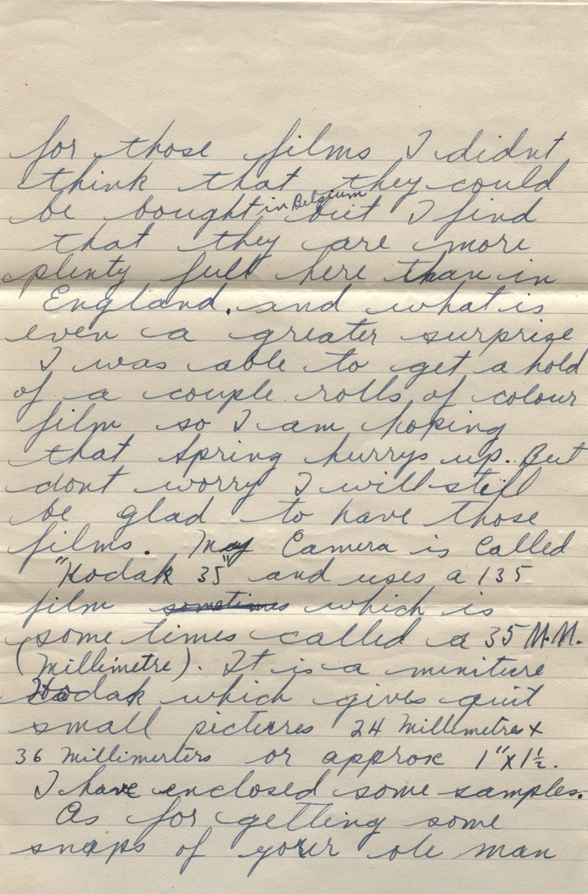 for those films I didnt
think that they could
be bought in Belgium but I find
that they are more
plenty full here than in
England. and what is
even a greater surprise
I was able to get a hold
of a couple rolls of colour
film so I am hoping
that Spring hurrys up. But
dont worry I will still
be glad to have those
films. My Camera is called
"Kodak 35" and uses a 135
film sometimes which is
some times called a 35 M.M.
(Millimetre). It is a miniture
Kodak which gives quit
small pictures 24 Millimetres x
36 Millimerters or approx 1" x 1½.
I have enclosed some samples.
As for getting some
snaps of your ole man